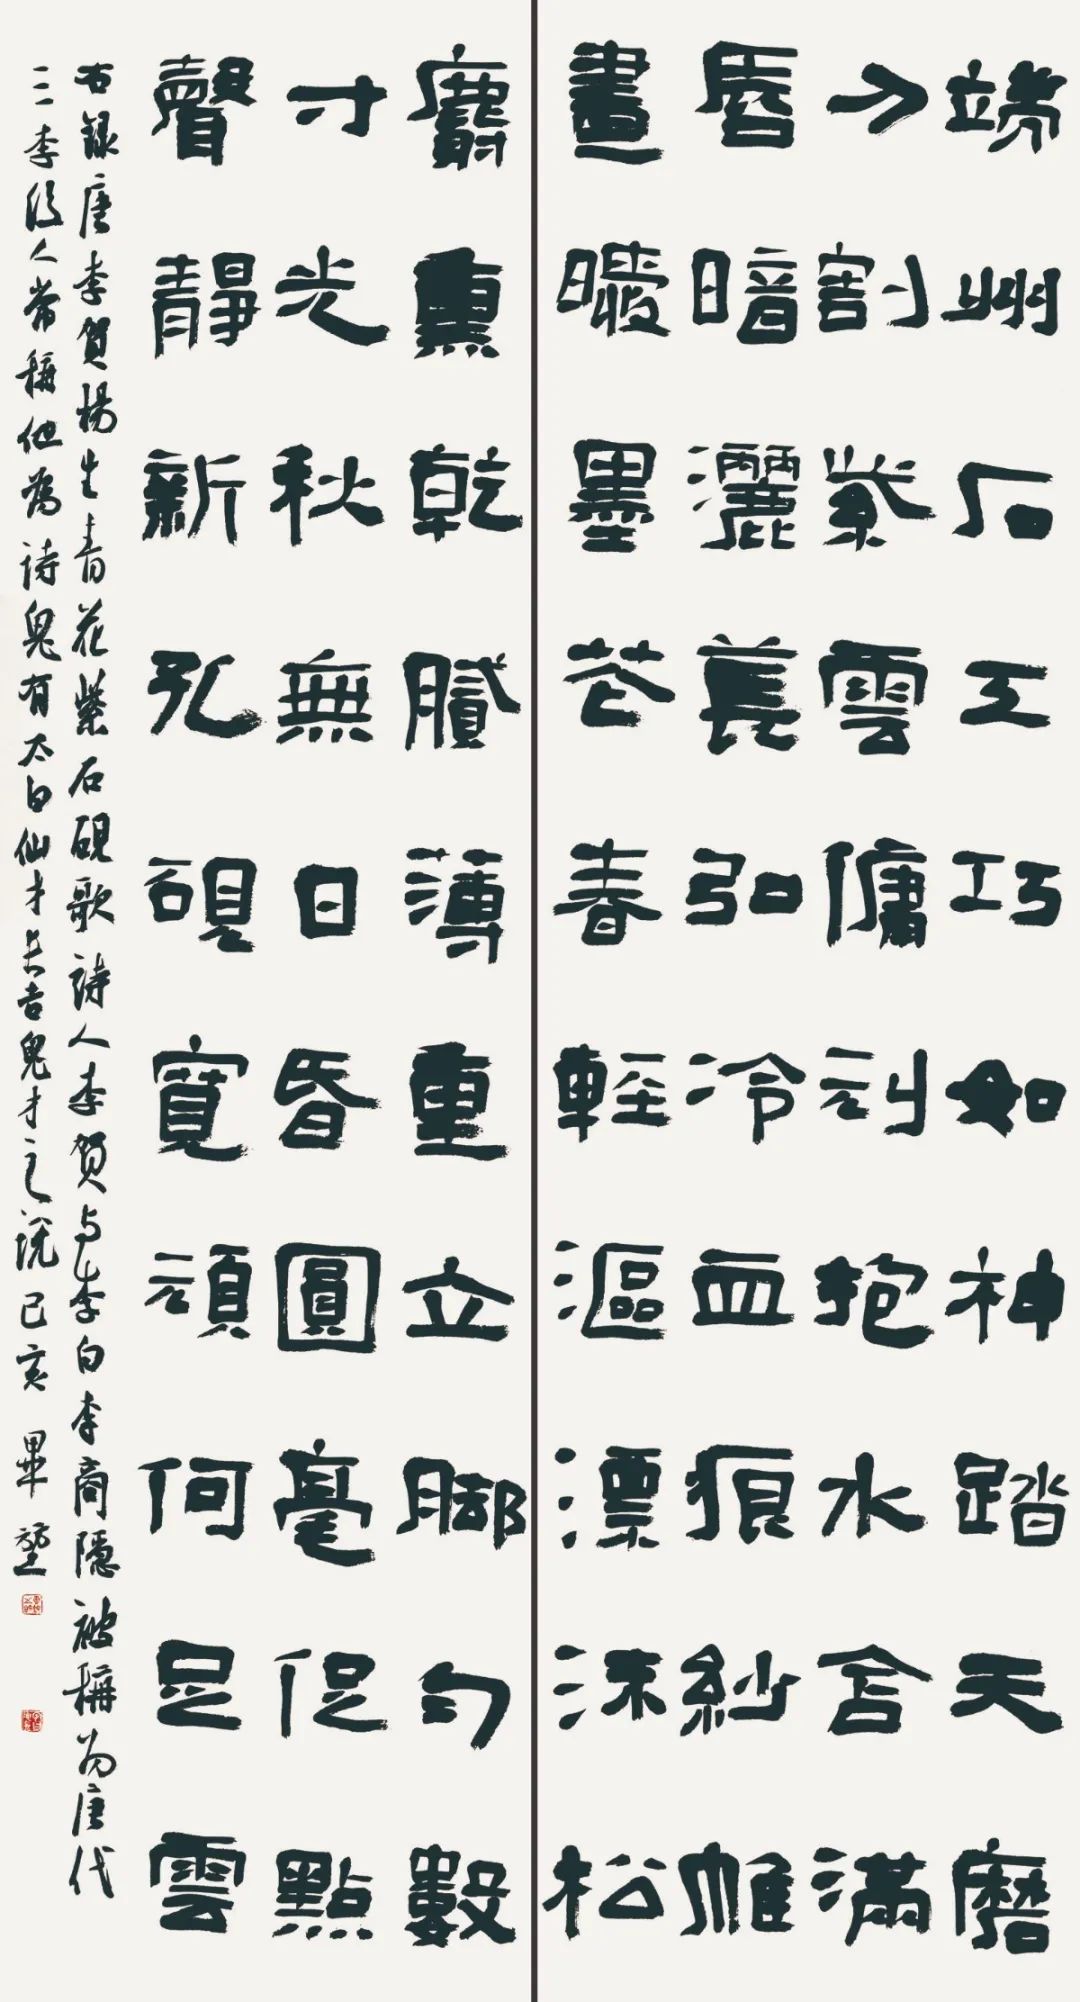 端州石工巧如神踏天磨
刀割紫雲傭刓抱水含滿
唇暗灑萇弘冷血痕紗帷
晝暖墨花春輕漚漂沫松
麝熏乾膩薄重立脚勻數
寸光秋無日昏圓毫促點
聲靜新孔硯寬頑何足雲
右録唐李賀楊生青花紫石硯歌詩人李賀与李白李商隱被稱为唐代
三李後人常稱他為詩鬼有太白仙才長吉鬼才之説己亥 畢